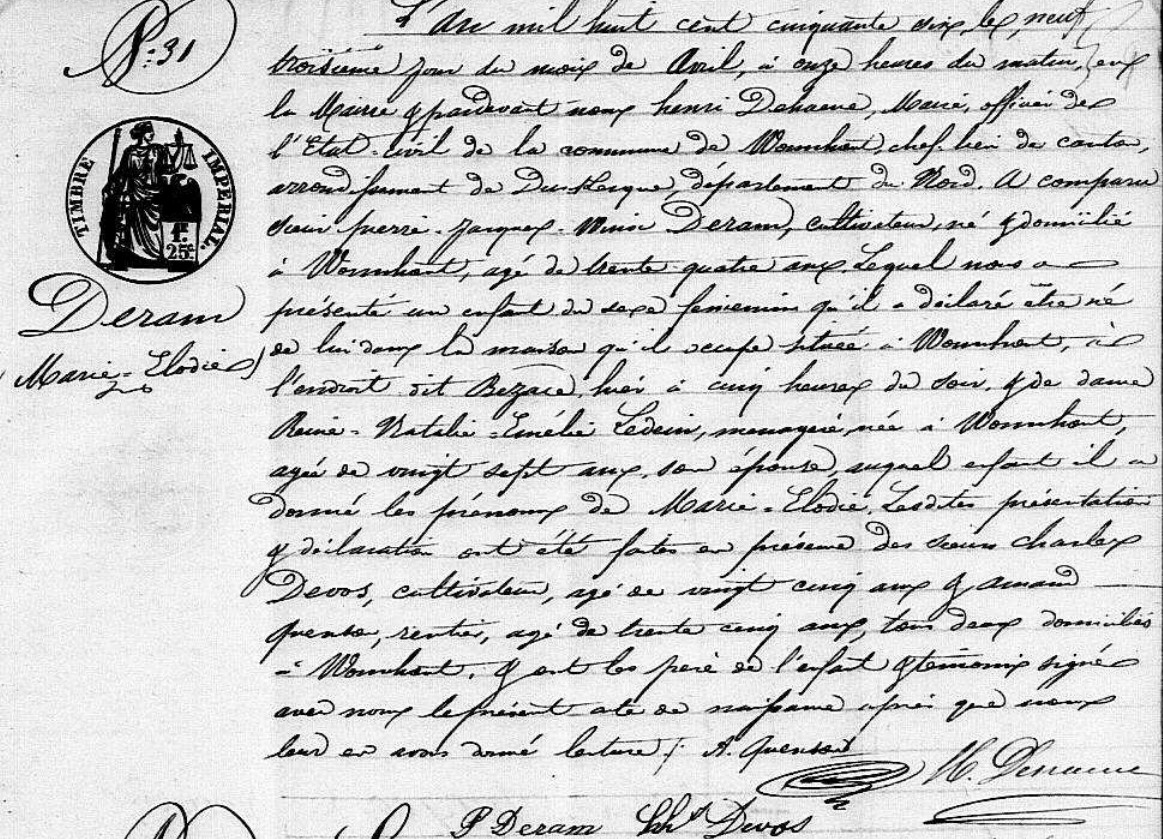 N°: 31
L'an mil huit cent cinquante six, le, neuf
troisième jour du mois de Avril, à onze heures du matin, en
la Mairie & pardevant nous henri Dehaene, Maire, officier de
l'Etat-civil de la commune de Wormhout, chef-lieu de canton,
arrondissement de Dunkerque, département du Nord. A comparu
sieur pierre-Jacques-Winoc Deram, cultivateur, né & domicilié
à Wormhout, agé de trente quatre ans. Lequel nous a
présenté un enfant du sexe feminin qu'il a déclaré être né
de lui dans la maison qu'il occupe située à Wormhout, à
l'endroit dit Bezace, hier à cinq heures du soir, & de dame
Reine-Natalie-Emélie Ledein, menagère, née à Wormhout,
agée de vingt sept ans, son épouse, auquel enfant il a
donné les prénoms de Marie-Elodie. Lesdites présentation
& déclaration ont été faites en présence des sieurs charles
Devos, cultivateur, agé de vingt cinq ans & amand
quenson, rentier, agé de trente cinq ans, tous deux domiciliés
à Wormhout, & ont les père de l'enfant & témoins signé
avec nous le présent acte de naissance après que nous
leur en avons donné lecture ./. A. Quenson
H. Dehaene
P Deram Chs Devos
TIMBRE IMPÉRIAL.
1f.
25c.
Deram
Marie-Elodie